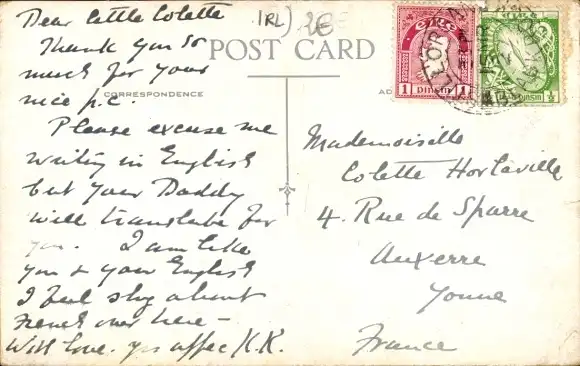 Dear little Colette
Thank you so
much for your
nice p.c.
Please excuse me
writing in English
but your Daddy
will translate for
you. I am like
you & your English
I feel shy about
French over here –
With love. yrs affec/K.K.
IRL) 2E
POST CARD
CORRESPONDENCE
AD
éire
1 PINSIN 1
éire
½ PINSIN
Mademoiselle
Colette Hortaville
4. Rue de Sparre
Auxerre
Yonne
France